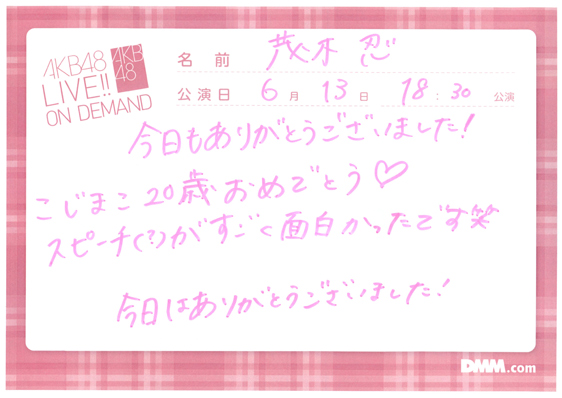 AKB48
LIVE!!
ON DEMAND
AKB
48
名前 茂木忍
公演日 6月13日 18:30 公演
今日もありがとうございました!
こじまこ20歳おめでとう♡
スピーチ(?)がすごく面白かったです笑
今日はありがとうございました!
DMM.com